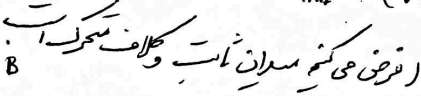 (فرض می کنیم میدان ثابت و کلاف متحرک است
B